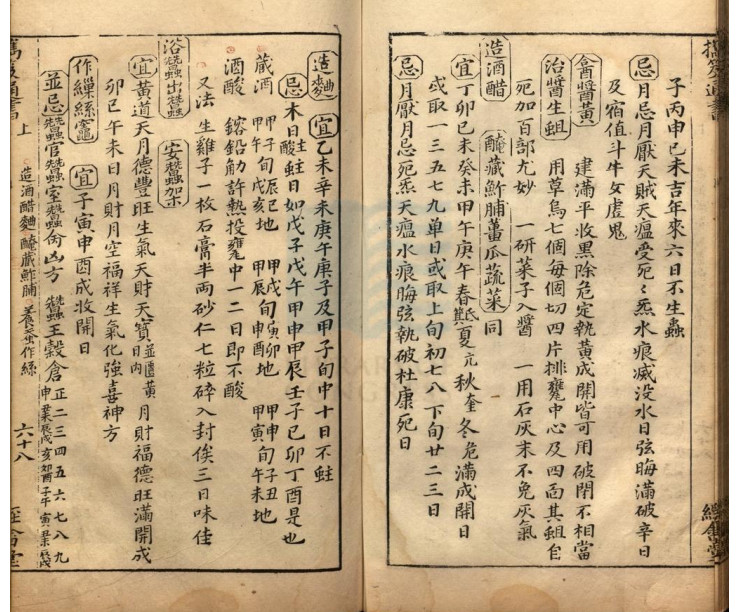 子丙申己未吉年來六日不生蟲
忌月忌月厭天賊天瘟受死〻炁水痕滅没水日弦晦滿破辛日
及宿值斗牛女虚鬼
合醬黃 建滿平收黑除危定執黃成開皆可用破閉不相當
治醬生蛆 用草烏七個每個切四片排甕中心及四面其蛆自
死加百部尤妙 一研菜子入醬 一用石灰末不免灰氣
造酒醋 醃藏鮓脯薑瓜蔬菜同
宜丁卯己未癸未甲午庚午春氐夏亢秋奎冬危滿成開日
或取一三五七九单日或取上旬初七八下旬廿二三日
忌月厭月忌死炁天瘟水痕晦弦執破杜康死日
造麯 宜乙未辛未庚午庚子及甲子旬中十日不蛀
忌木日主蛀日如戊子戊午甲申甲辰壬子己卯丁酉是也
藏酒 甲子旬辰巳地 甲戌旬寅卯地 甲申旬子丑地
甲午 戌亥地 甲辰 申酉地 甲寅旬午未地
酒酸 鎔鉛觔許熱投甕中一二日即不酸
又法 生雞子一枚石膏半両砂仁七粒碎入封俟三日味佳
浴蠶出蠶 安蠶架
宜黄道天月德豐旺生氣天財天寳日内 月財福德旺滿開成
卯巳午未日月財月空福祥生氣化強喜神方
作繅絲竈 宜子寅申酉成收開日
並忌蠶官蠶室蠶命凶方 蠶王榖倉 正二三四五六七八九
造酒醋麯醃藏鮓脯 養蚕作絲
上
六十八
經盒堂